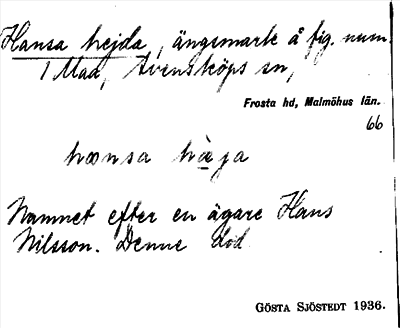 Hansa hejda, ängsmark å fig. num.
1 Maa, Svensköps sn,
Frosta hd, Malmöhus län.
66
hansa haja
Namnet efter en ägare Hans
Nilsson. Denne död
GÖSTA SJÖSTEDT 1936.